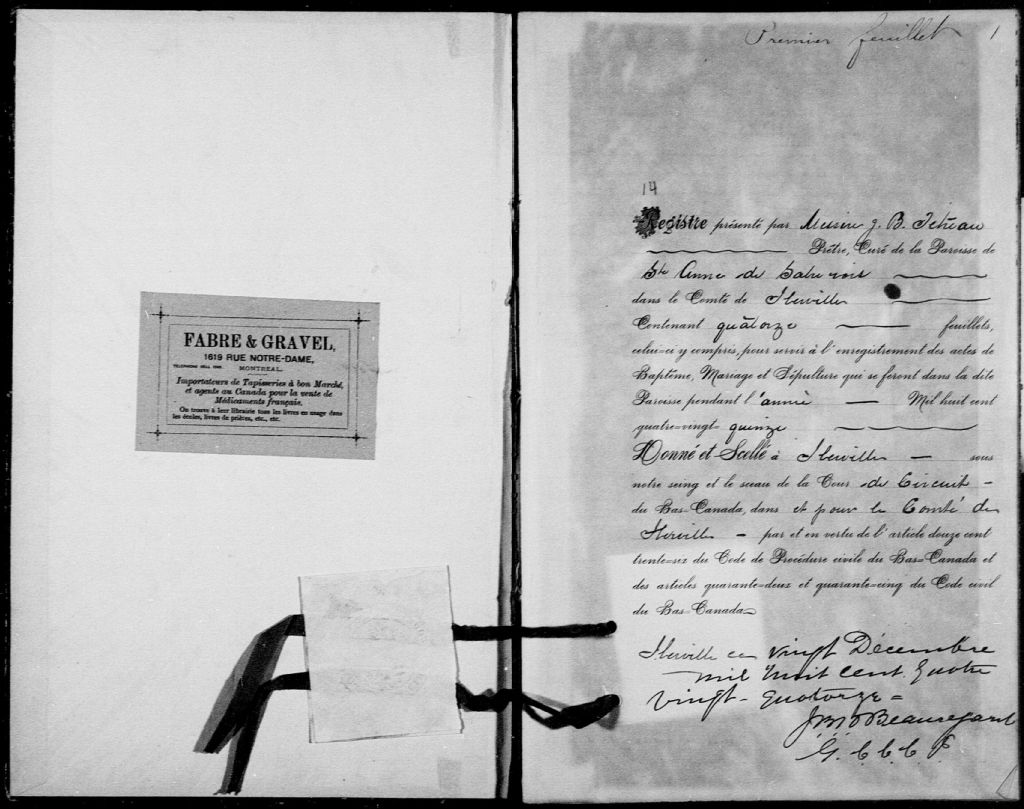 FABRE & GRAVEL,
1619 RUE NOTRE-DAME,
TELEPHONE BELL
MONTREAL.
Importateurs de Tapisseries à bon Marché,
et agents au Canada pour la vente de
Médicaments français.
On trouve à leur librairie tous les livres en usage dans
les écoles, livres de prières, etc., etc.
Premier feuillet 1
14
Registre présenté par Messire J. B.
Prêtre, Curé de la Paroisse de
Ste Anne de Sabrevois
dans le Comté de Iberville
Contenant quatorze feuillets,
celui-ci y compris, pour servir à l'enregistrement des actes de
Baptême, Mariage et Sépulture qui se feront dans la dite
Paroisse pendant l'année Mil huit cent
quatre-vingt-quinze
Donné et Scellé à Iberville sous
notre seing et le sceau de la Cour de Circuit
du Bas-Canada, dans et pour le Comté de
Iberville par et en vertu de l'article douze cent
trente-six du Code de Procédure civile du Bas-Canada et
des articles quarante-deux et quarante-cinq du Code civil
du Bas-Canada
Iberville ce vingt Décembre
mil huit cent quatre
vingt-quatorze =
Beauregard
G. C. C. C.